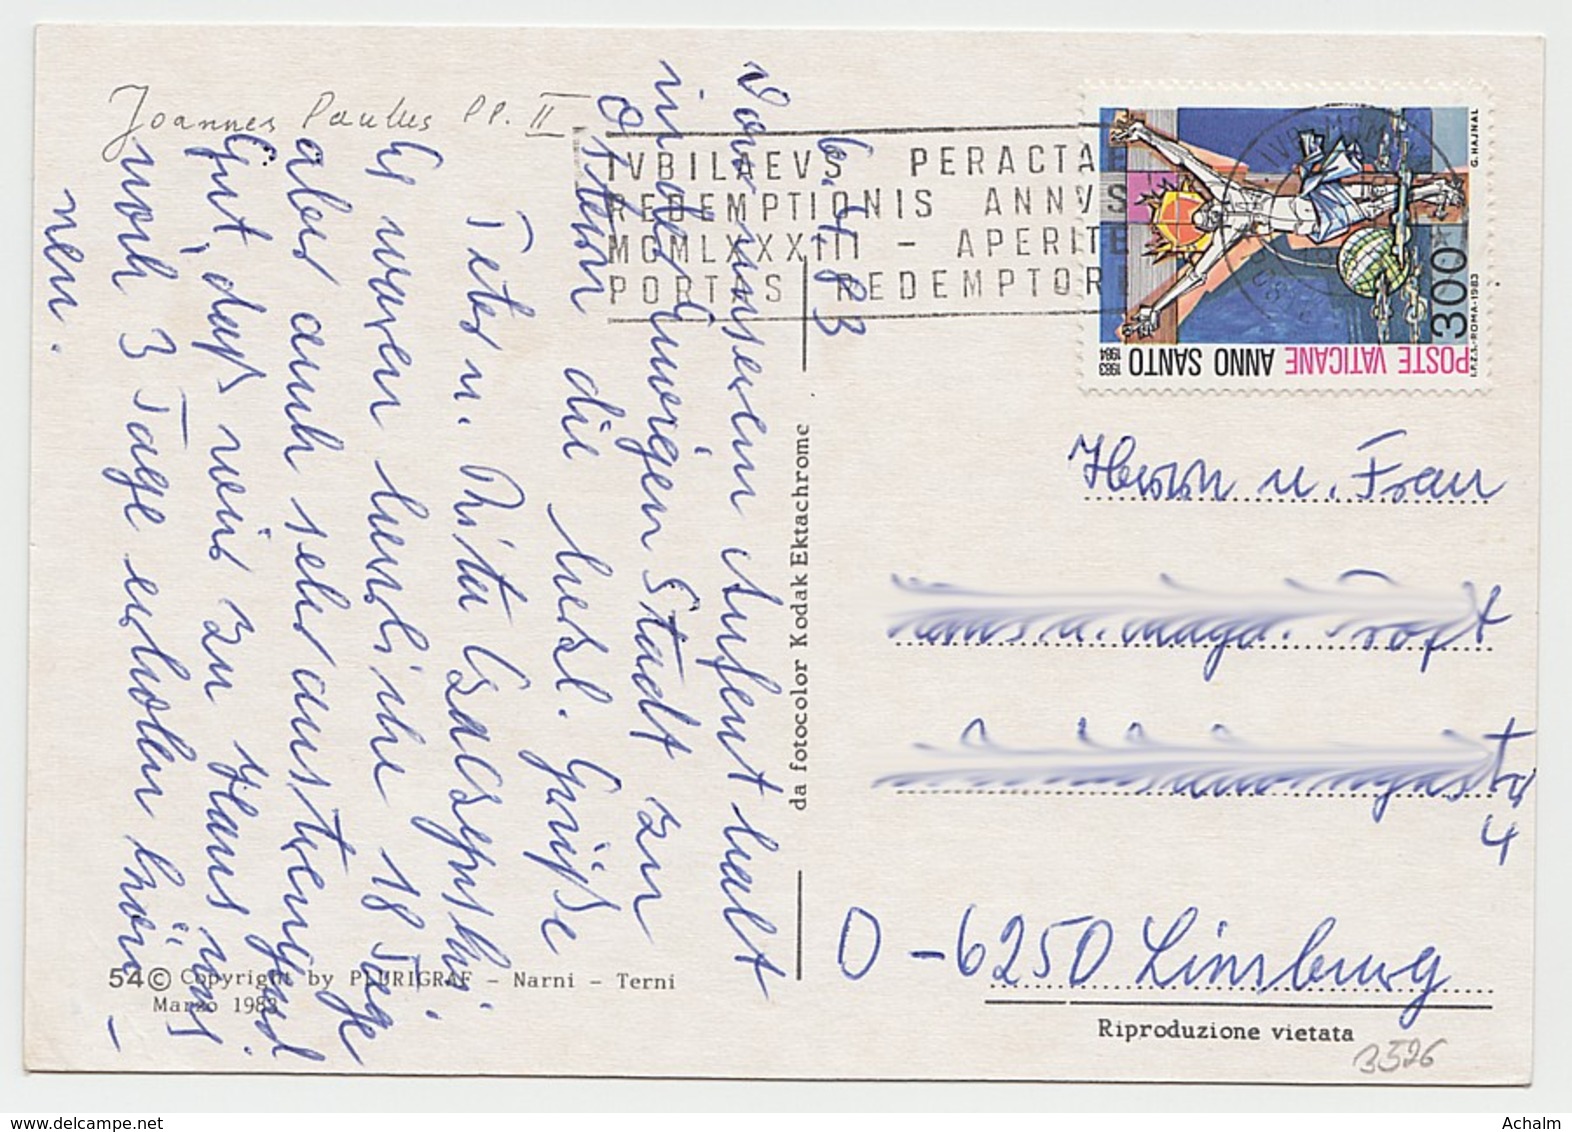 Joannes Paulus PP. II
IVBILAEVS PERACTAE
REDEMPTIONIS ANNVS
MCMLXXXIII - APERITE
PORTAS REDEMPTORI
G. HAJNAL
300
I.P.Z.S.-ROMA-1983
POSTE VATICANE ANNO SANTO 1983 1984
6.4.83
Von unserem Aufenthalt
in der Ewigen Stadt zu
Ostern die herzl. Grüße
Peter u. Rita
Es waren herrliche 18 Tage
aber auch sehr anstrengend
Gut, daß wir zu Haus uns
noch 3 Tage erholen kön-
nen.
da fotocolor Kodak Ektachrome
Herrn u. Frau
4
D-6250 Limburg
54 © Copyright by PLURIGRAF - Narni - Terni
Marzo 1983
Riproduzione vietata
3526
www.delcampe.net
Achalm